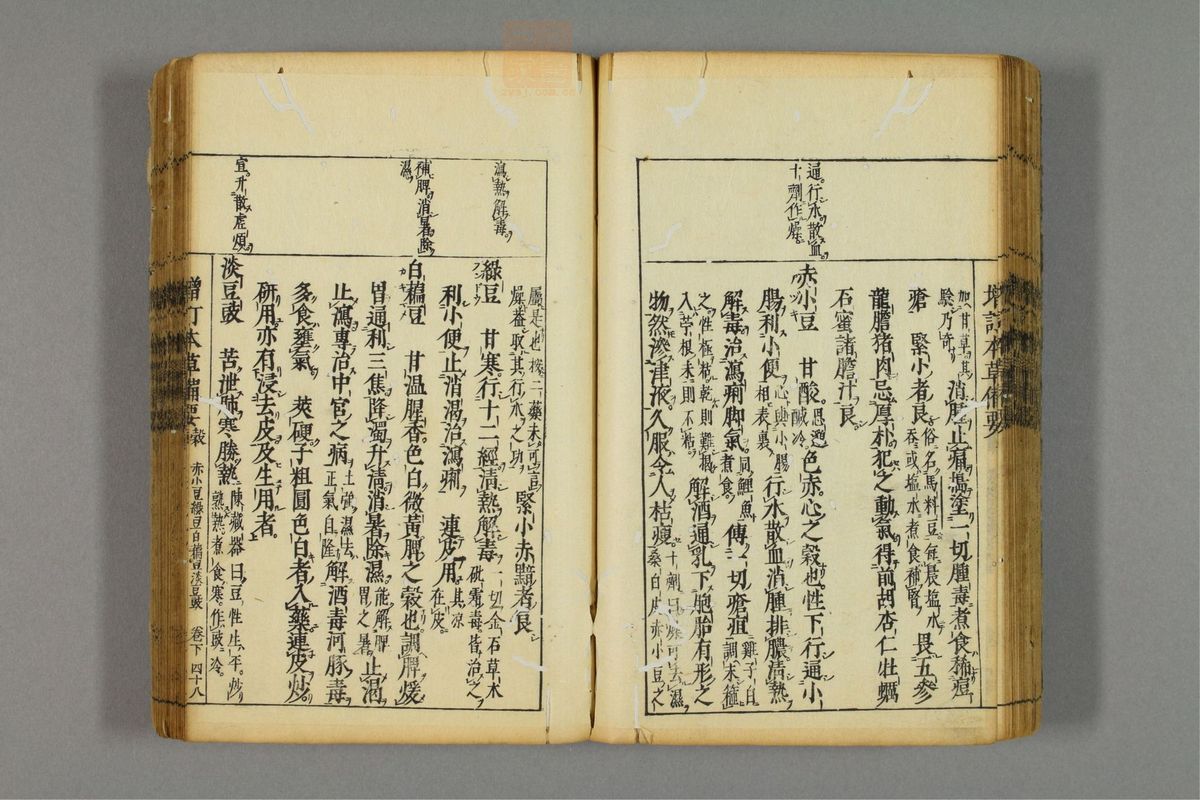 增訂本草備要
加甘草其
驗乃奇
消腫止痛搗塗一切腫毒煮食稀痘
瘡
緊小者良
俗名馬料豆每晨鹽水
吞或鹽水煮食補腎
畏五參
龍膽猪肉忌厚朴犯之動氣得前胡杏仁牡蠣
石蜜諸膽汁良
通行水散血
十劑作燥
赤小豆
甘酸
思邈
鹹冷
色赤心之穀也性下行通小
腸利小便
心與小腸
相表裏
行水散血消腫排膿清熱
解毒治瀉痢脚氣
同鯉魚
煮食
傅一切瘡疽
雞子白
調末箍
之性極粘乾則難揭
入苧根末則不粘
解酒通乳下胞胎有形之
物然滲津液久服令人枯瘦
十劑曰燥可去濕
桑白皮赤小豆之
屬是也按二藥未可言
燥葢取其行水之功
緊小赤黯者良
瀉熱解毒
綠豆
甘寒行十二經清熱解毒
一切金石草木
砒霜毒皆治之
利小便止消渴治瀉痢
連皮用
其涼
在皮
補脾消暑除
濕
白藊豆
甘温腥香色白微黃脾之穀也調脾煖
胃通利三焦降濁升清消暑除濕
能解脾
胃之暑
止渴
止瀉專治中宮之病
土強濕去
正氣自隆
解酒毒河豚毒
多食壅氣
莢硬子粗圓色白者入藥連皮炒
研用亦有浸去皮及生用者
宣升散虛煩
淡豆豉
苦泄肺寒勝熱
陳藏器曰豆性生平炒
熟熱煮食寒作豉冷
增訂本草備要
穀
赤小豆綠豆白藊豆淡豆豉
卷下
四十八